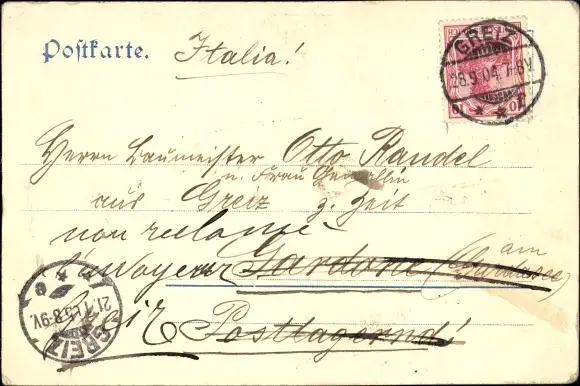 Postkarte.
Italia!
GREIZ
28.9.04. 7-8V.
Herrn Baumeister Otto Randel
u. Frau Gemahlin
aus Greiz z. Zeit
non reclamé
envoyer Gardone (am Gardasee)
Greiz Postlagernd!
GREIZ